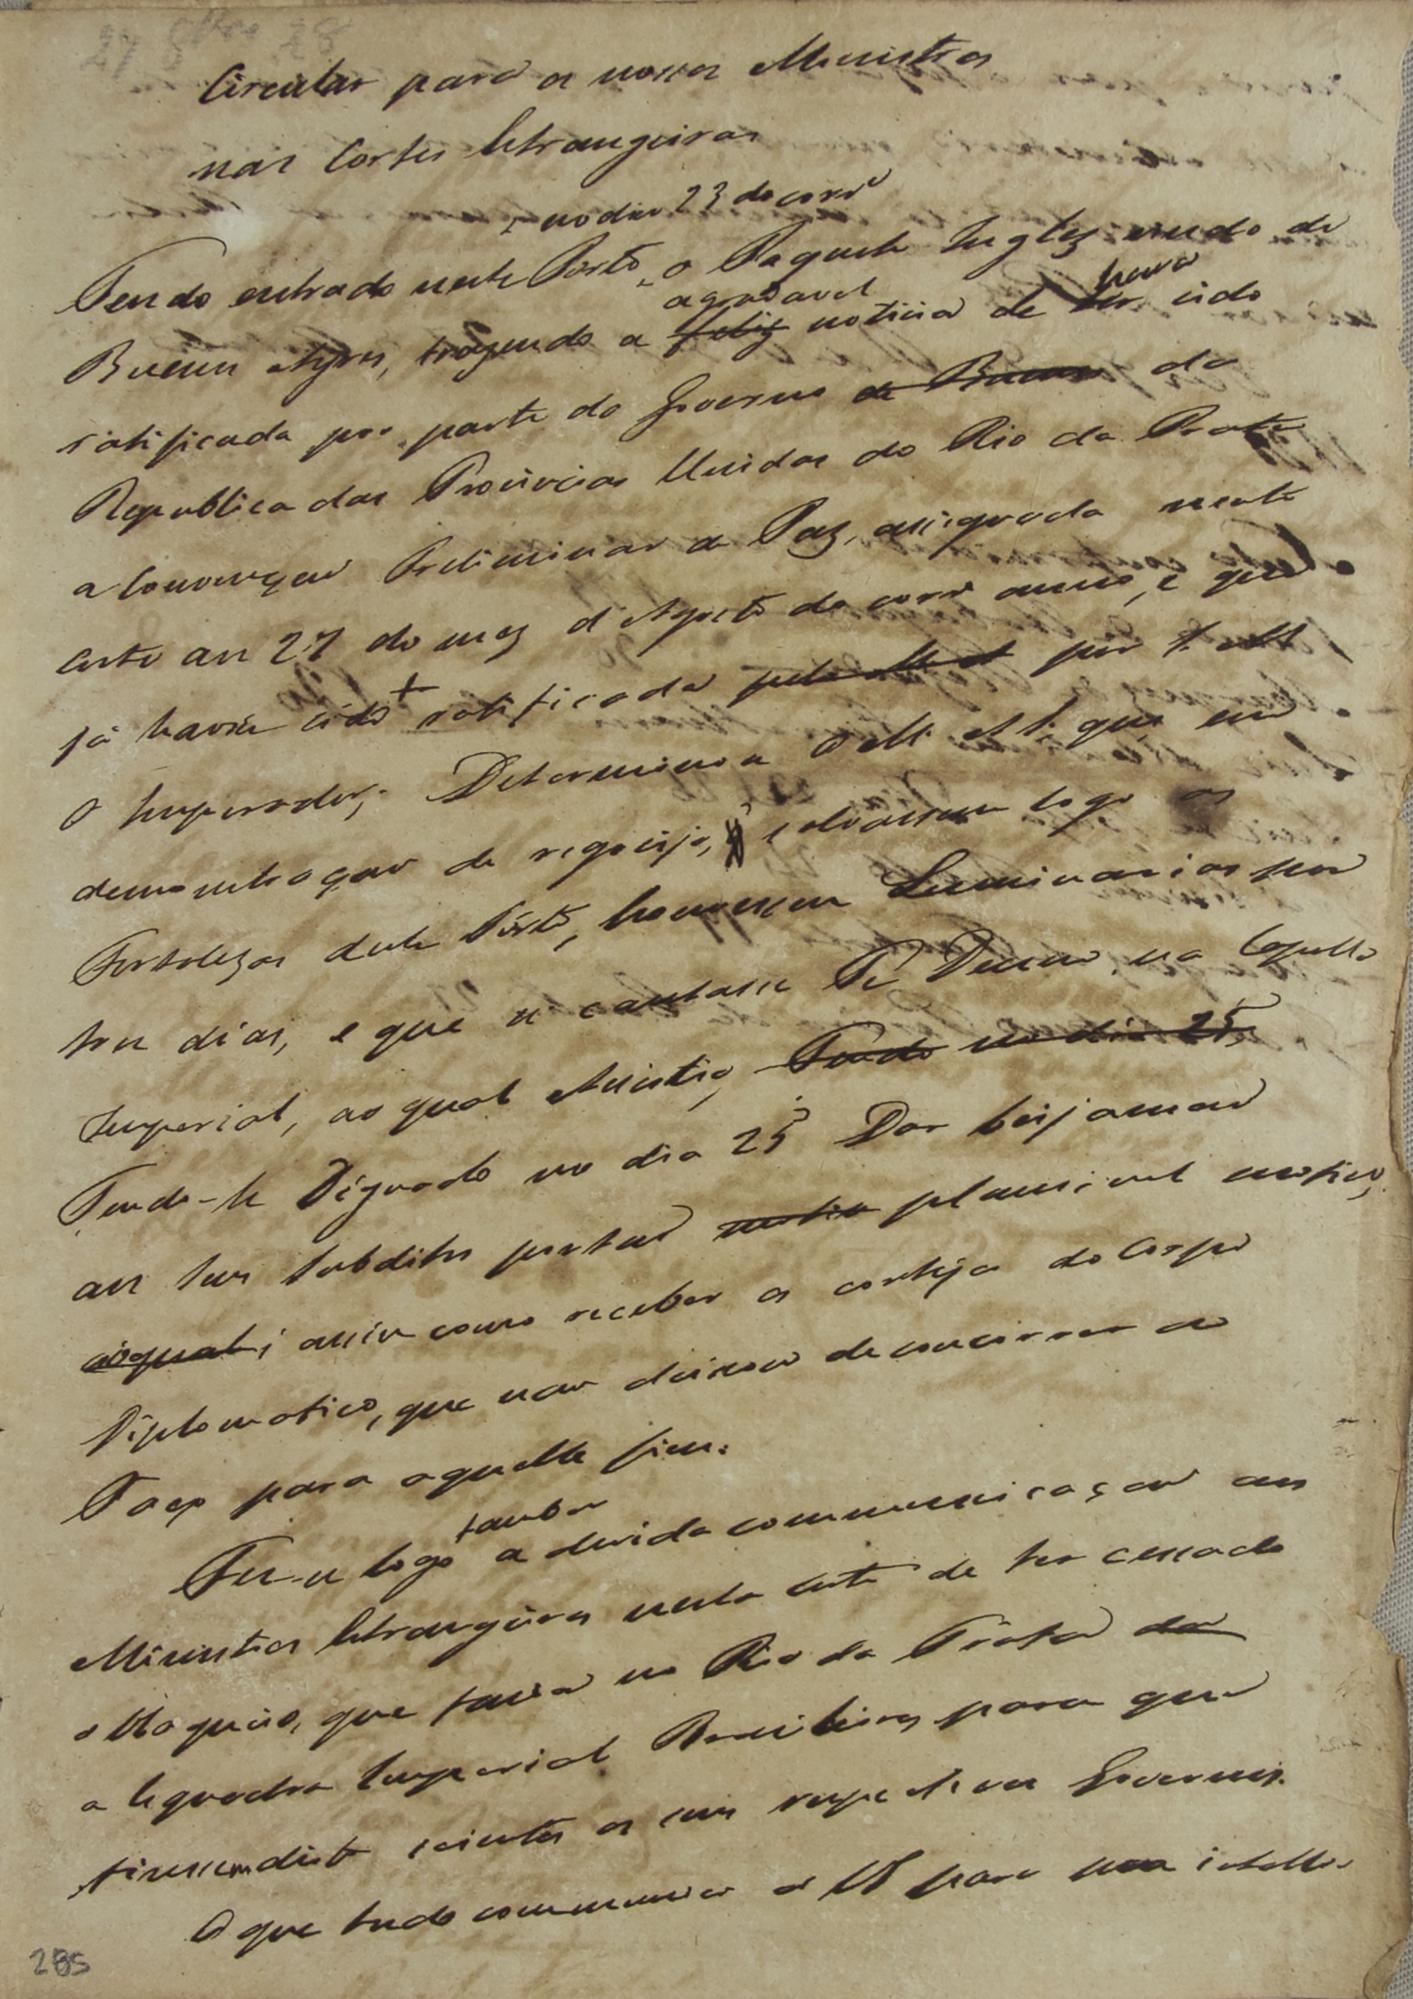 27 8bro 28
Circular para os nossos Ministros
nas Cortes Estrangeiras
no dia 23 do corre
Tendo entrado neste Porto, o Paquete Inglez vindo de
agradavel
havia
Buenos Ayres, trazendo a feliz noticia de ter sido
ratificada por parte do Governo de Buenos da
Republica das Provincias Unidas do Rio da Prata
a Convenção Preliminar de Paz, assignada nesta
Corte aos 27 do mez d'Agosto do corre anno, e que
já havia sido ratificada pelo por S. M.
O Imperador; Determinou O M. A. S. que em
demonstração de regosijo, salvassem logo as
Fortalezas deste Porto, houvessem Luminarias por
tres dias, e que se cantasse Te Deum na Capella
Imperial, ao qual Assistio, Tendo no dia 25,
Tendo-Se Dignado no dia 25 Dar beijamão
aos Seus Subditos por tão motivo plausivel motivo,
igual; assim como receber os cortejos do Corpo
Diplomatico, que não deixou de concorrer ao
Paço para aquelle fim.
tambem
Fez-se logo a devida communicação aos
Ministros Estrangeiros nesta Corte de ter cessado
o Bloqueio, que fazia no Rio da Prata da
a Esquadra Imperial Brasileira, para que
fizessem disto scientes os seus respectivos Governos.
O que tudo communico a VS para sua intelli-
285